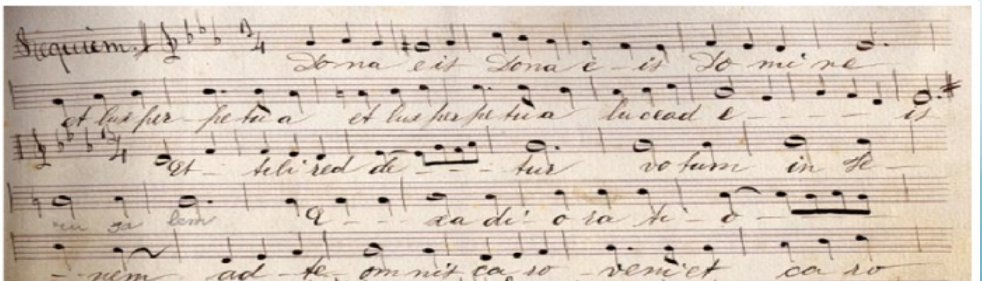 Requiem. Dona eis Dona e-is Do mi ne
et lux per-petua et lux perpetua lucead e - - - - is
Et - tibi red de - - - tur votum in Je -
ru sa lem E - - - xa di - o ra ti - o -
- - nem ad - te omnis ca ro - veniet ca ro